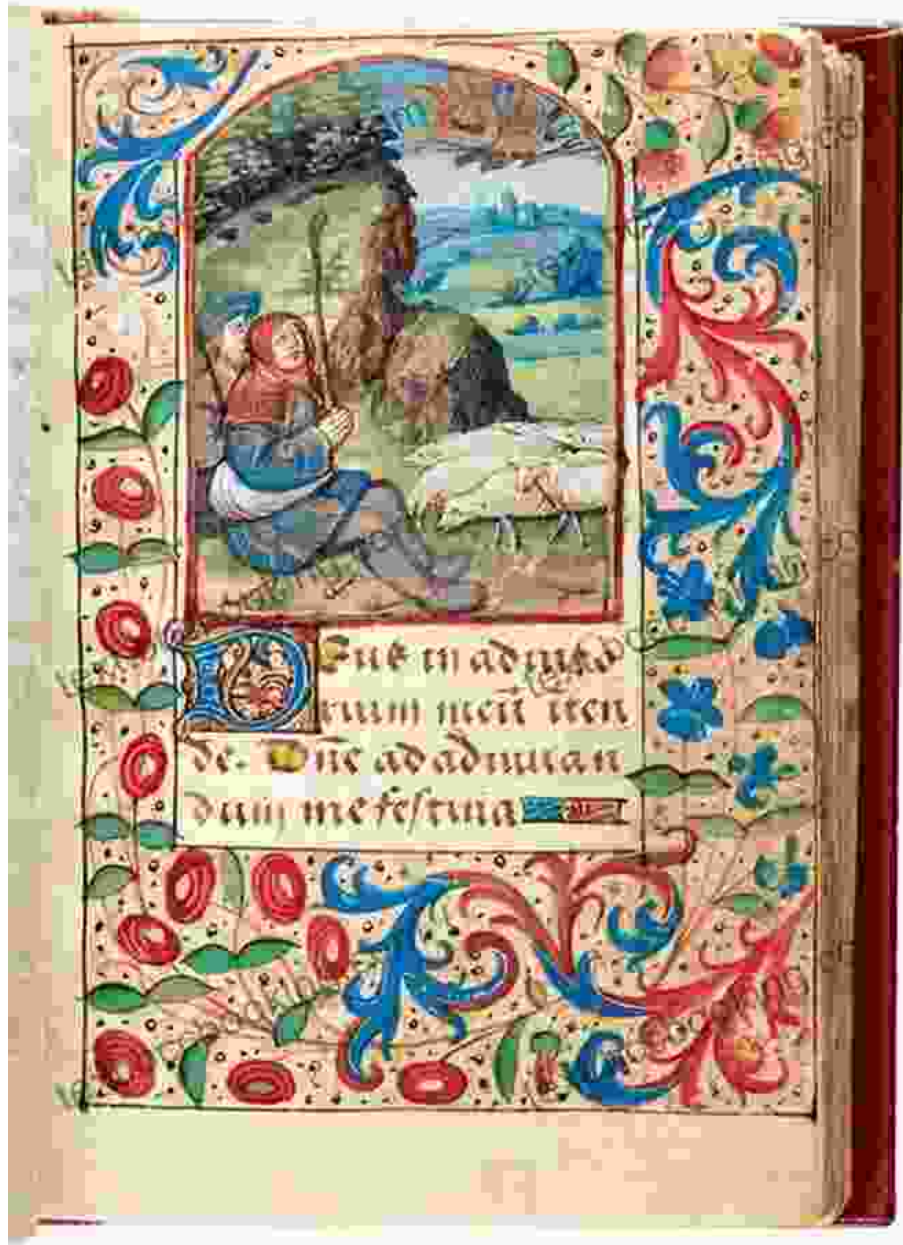 Deus in adiuto
rium meū inten
de. Dn̄e ad adiuuan
dum me festina